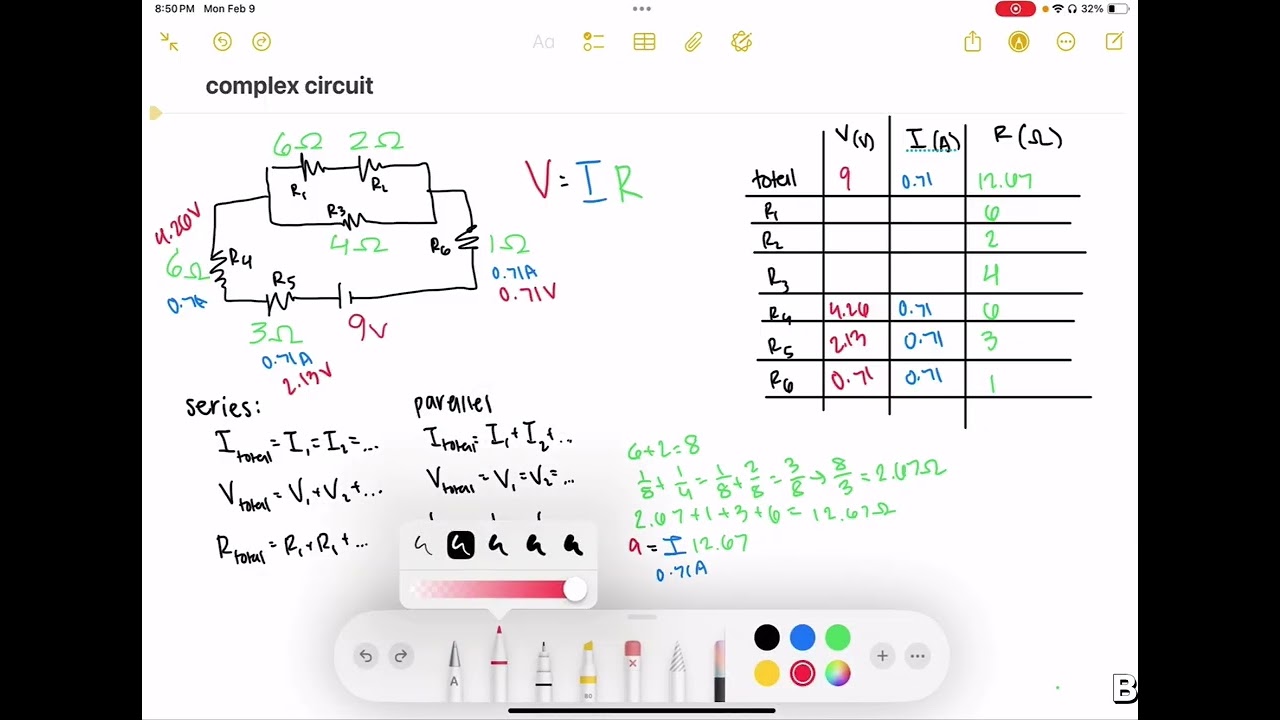 8:50 PM Mon Feb 9
32%
Aa
complex circuit
6Ω 2Ω
R₁ R₂
R₃
4Ω
4.26V
6Ω R₄
0.71A
R₅
3Ω
0.71A
2.13V
9V
R₆ 1Ω
0.71A
0.71V
V = I R
V(V) I(A) R(Ω)
total 9 0.71 12.67
R₁ 6
R₂ 2
R₃ 4
R₄ 4.26 0.71 6
R₅ 2.13 0.71 3
R₆ 0.71 0.71 1
series:
I total = I₁ = I₂ = ...
V total = V₁ + V₂ + ...
R total = R₁ + R₁ + ...
parallel
I total = I₁ + I₂ + ...
V total = V₁ = V₂ = ...
6+2=8
1/8 + 1/4 = 1/8 + 2/8 = 3/8 → 8/3 = 2.67Ω
2.67+1+3+6 = 12.67Ω
9 = I 12.67
0.71A
A
80
B